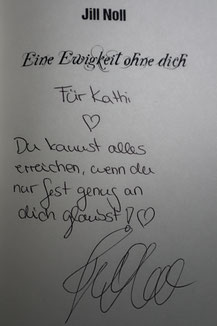 Jill Noll
Eine Ewigkeit ohne dich
Für Kathi
♡
Du kannst alles
erreichen, wenn du
nur fest genug an
dich glaubst! ♡